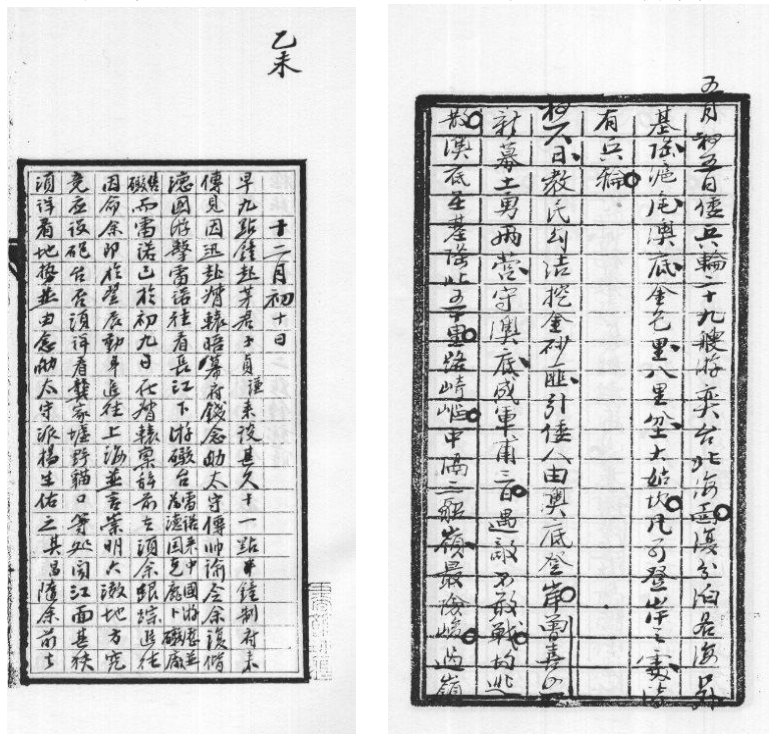 乙未
十二月初十日
早九點鐘赴芽君子貞謹來談甚久十一點半鐘制府來
傳見因迅赴督轅晤幕府錢念劬太守傳帥諭令余復偕
德國游擊雷諾往看長江下游礮台雷諾來中國游歷並為德國克虜卜礮廠
售礮而雷諾已於初九日在督轅稟辭前去須余跟踪追往
因命余即於翌辰動身追往上海並言崇明大澂地方究
竟應設砲台否須詳看龔家壚野貓口等処聞江面甚狹
須詳看地勢並由念劬太守派楊生佑之其昌隨余前去
五月初五日倭兵輪二十九艘游奕台北海面復分泊各海口外
基隆滬尾澳底金包里八里坌大姑坎凡可登岸之處皆
有兵輪
初六日教民勾結挖金砂匪引倭人由澳底登岸曾喜炤
新募土勇兩營守澳底成軍甫三日遇敵不敢戰均逃
散澳底至基隆止五十里路崎嶇中隔三貂嶺最險峻過嶺